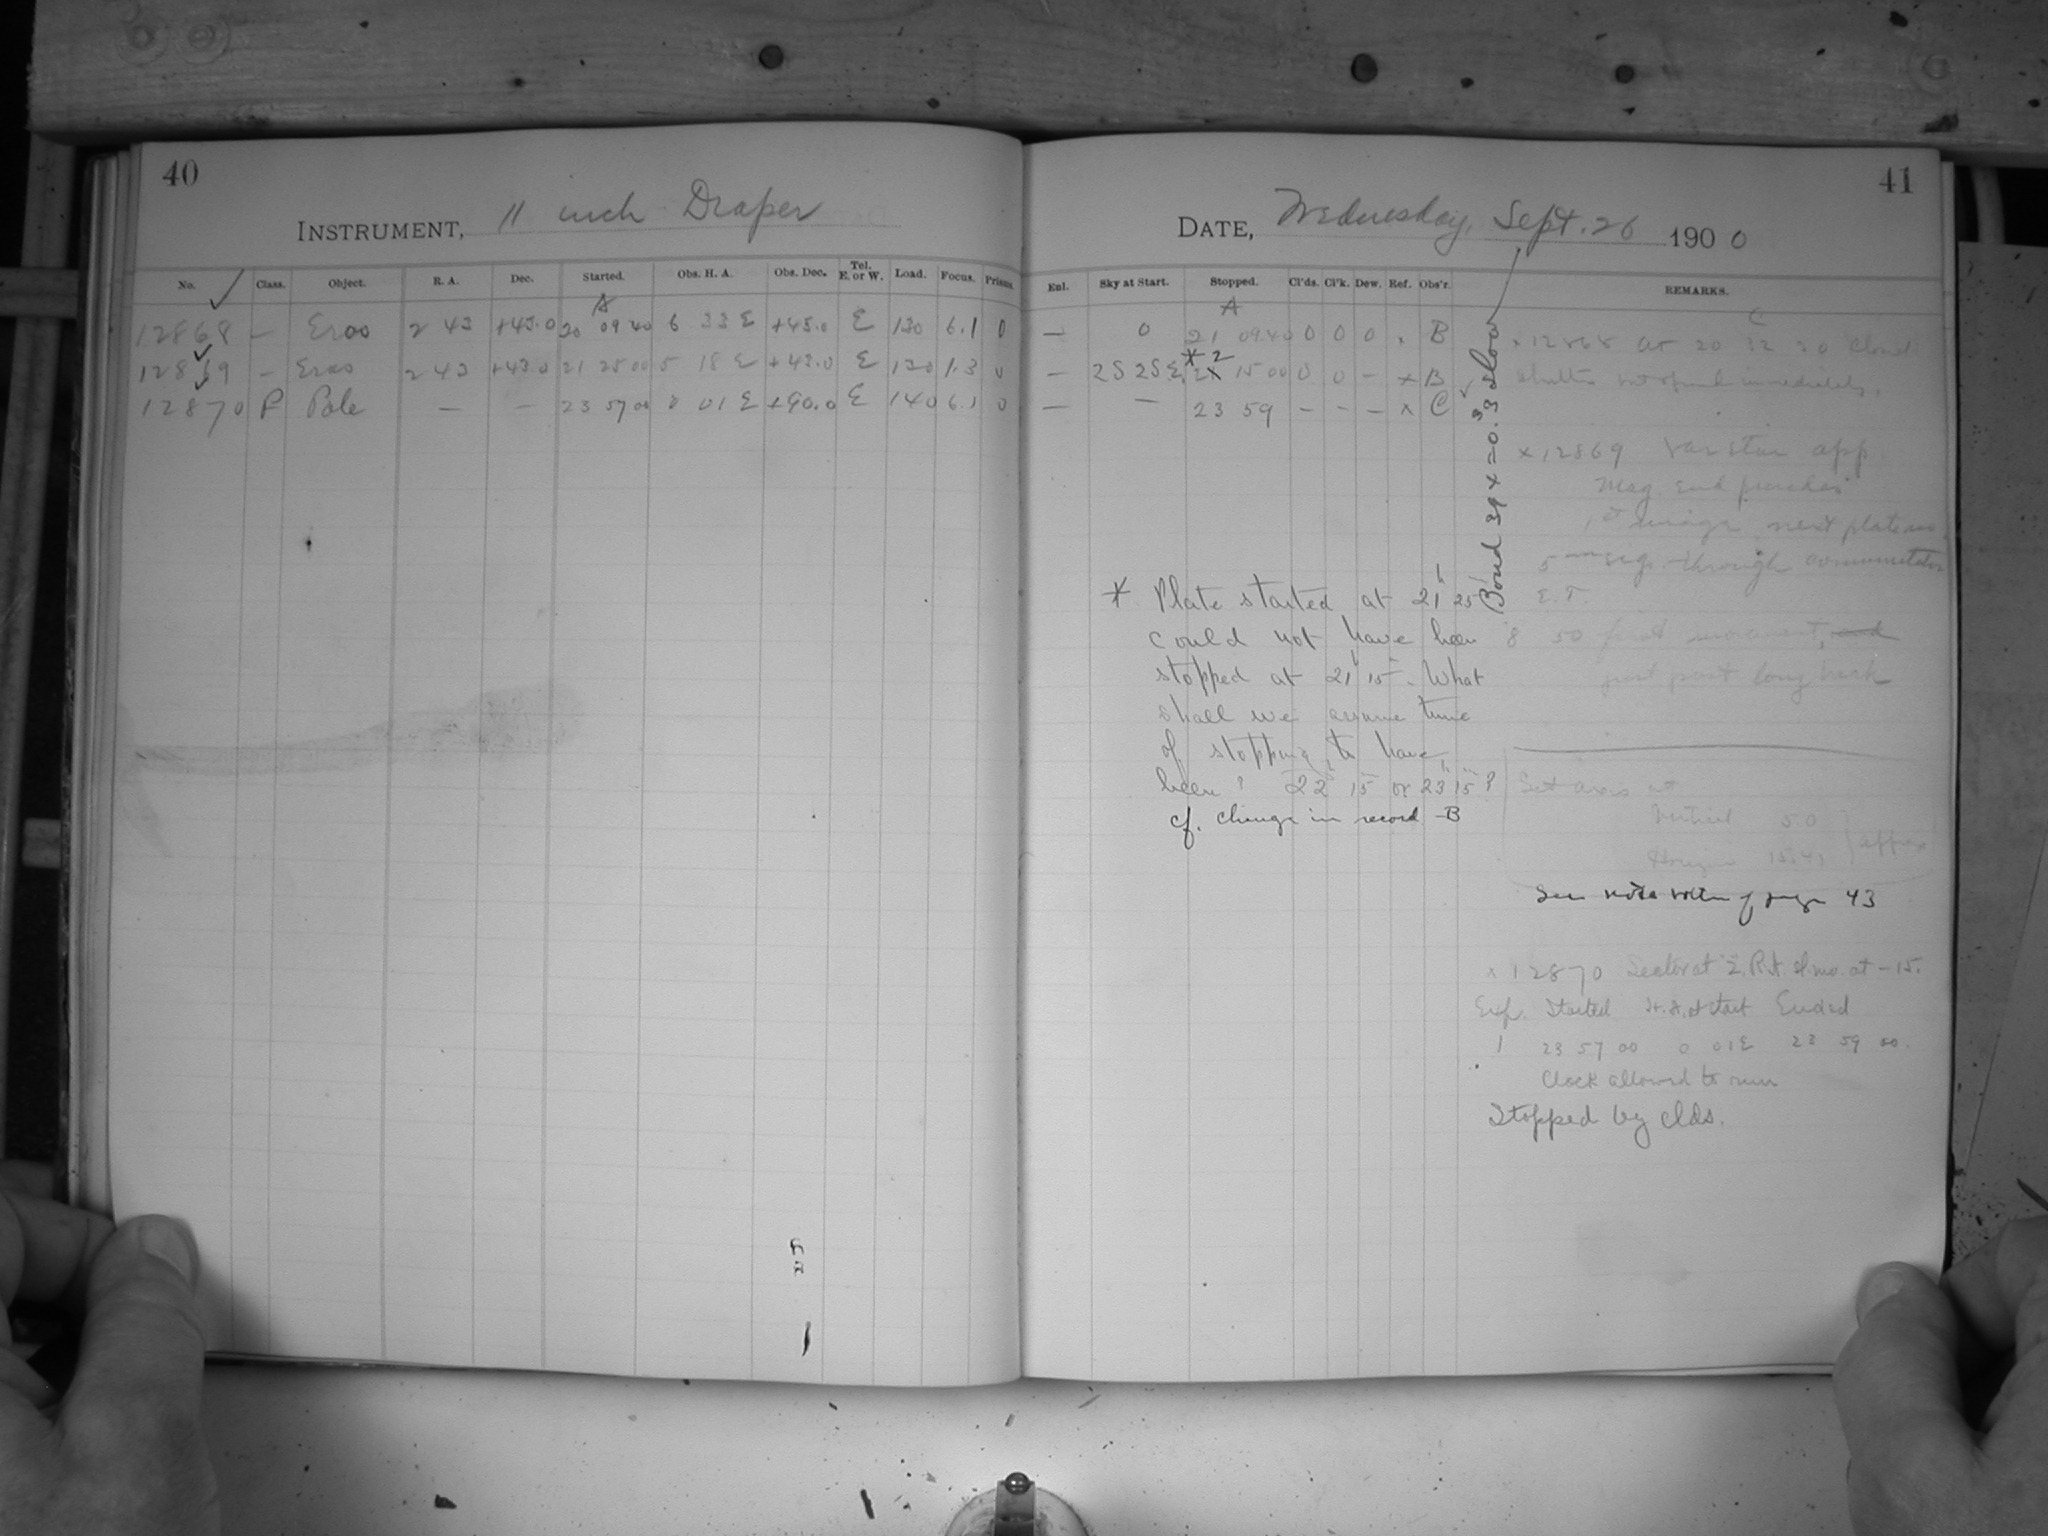 40
INSTRUMENT, 11 inch Draper
No. Class. Object. R. A. Dec. Started. Obs. H. A. Obs. Dec. Tel. E. or W. Load. Focus. Prisms.
A
12868 — Eros 2 43 +43.0 20 09 40 6 33 E +43.0 E 130 6.1 0
12869 — Eros 2 43 +43.0 21 25 00 5 18 E +43.0 E 120 1.3 0
12870 P Pole — — 23 57 00 0 01 E +90.0 E 140 6.1 0
41
DATE, Wednesday, Sept. 26 1900
Enl. Sky at Start. Stopped. Cl'ds. Cl'k. Dew. Ref. Obs'r. REMARKS.
A
— 0 21 09 40 0 0 0 x B
— 2S 2S E * 2 21 15 00 0 0 — x B
— — 23 59 — — — x C
Bond 39 x = 0.33 slow
x 12868 at 20 32 20 cloud
shutter not opened immediately.
x 12869 Var star app.
Meg end
1st image next plate
5 through commutator
E. T.
8 50 first movement, and
just past long
* Plate started at 21h 25
could not have been
stopped at 21h 15m. What
shall we assume time
of stopping to have
been? 22h 15m or 23h 15m?
cf. change in record —B
Set axes at
Vertical 5.0
15.4 approx
See note bottom of page 43
x 12870 Sector at 2. R.A. sl. mo. at −15.
Exp. Started H.A. at start Ended
1 23 57 00 0 01 E 23 59 00.
Clock allowed to run
Stopped by clds.